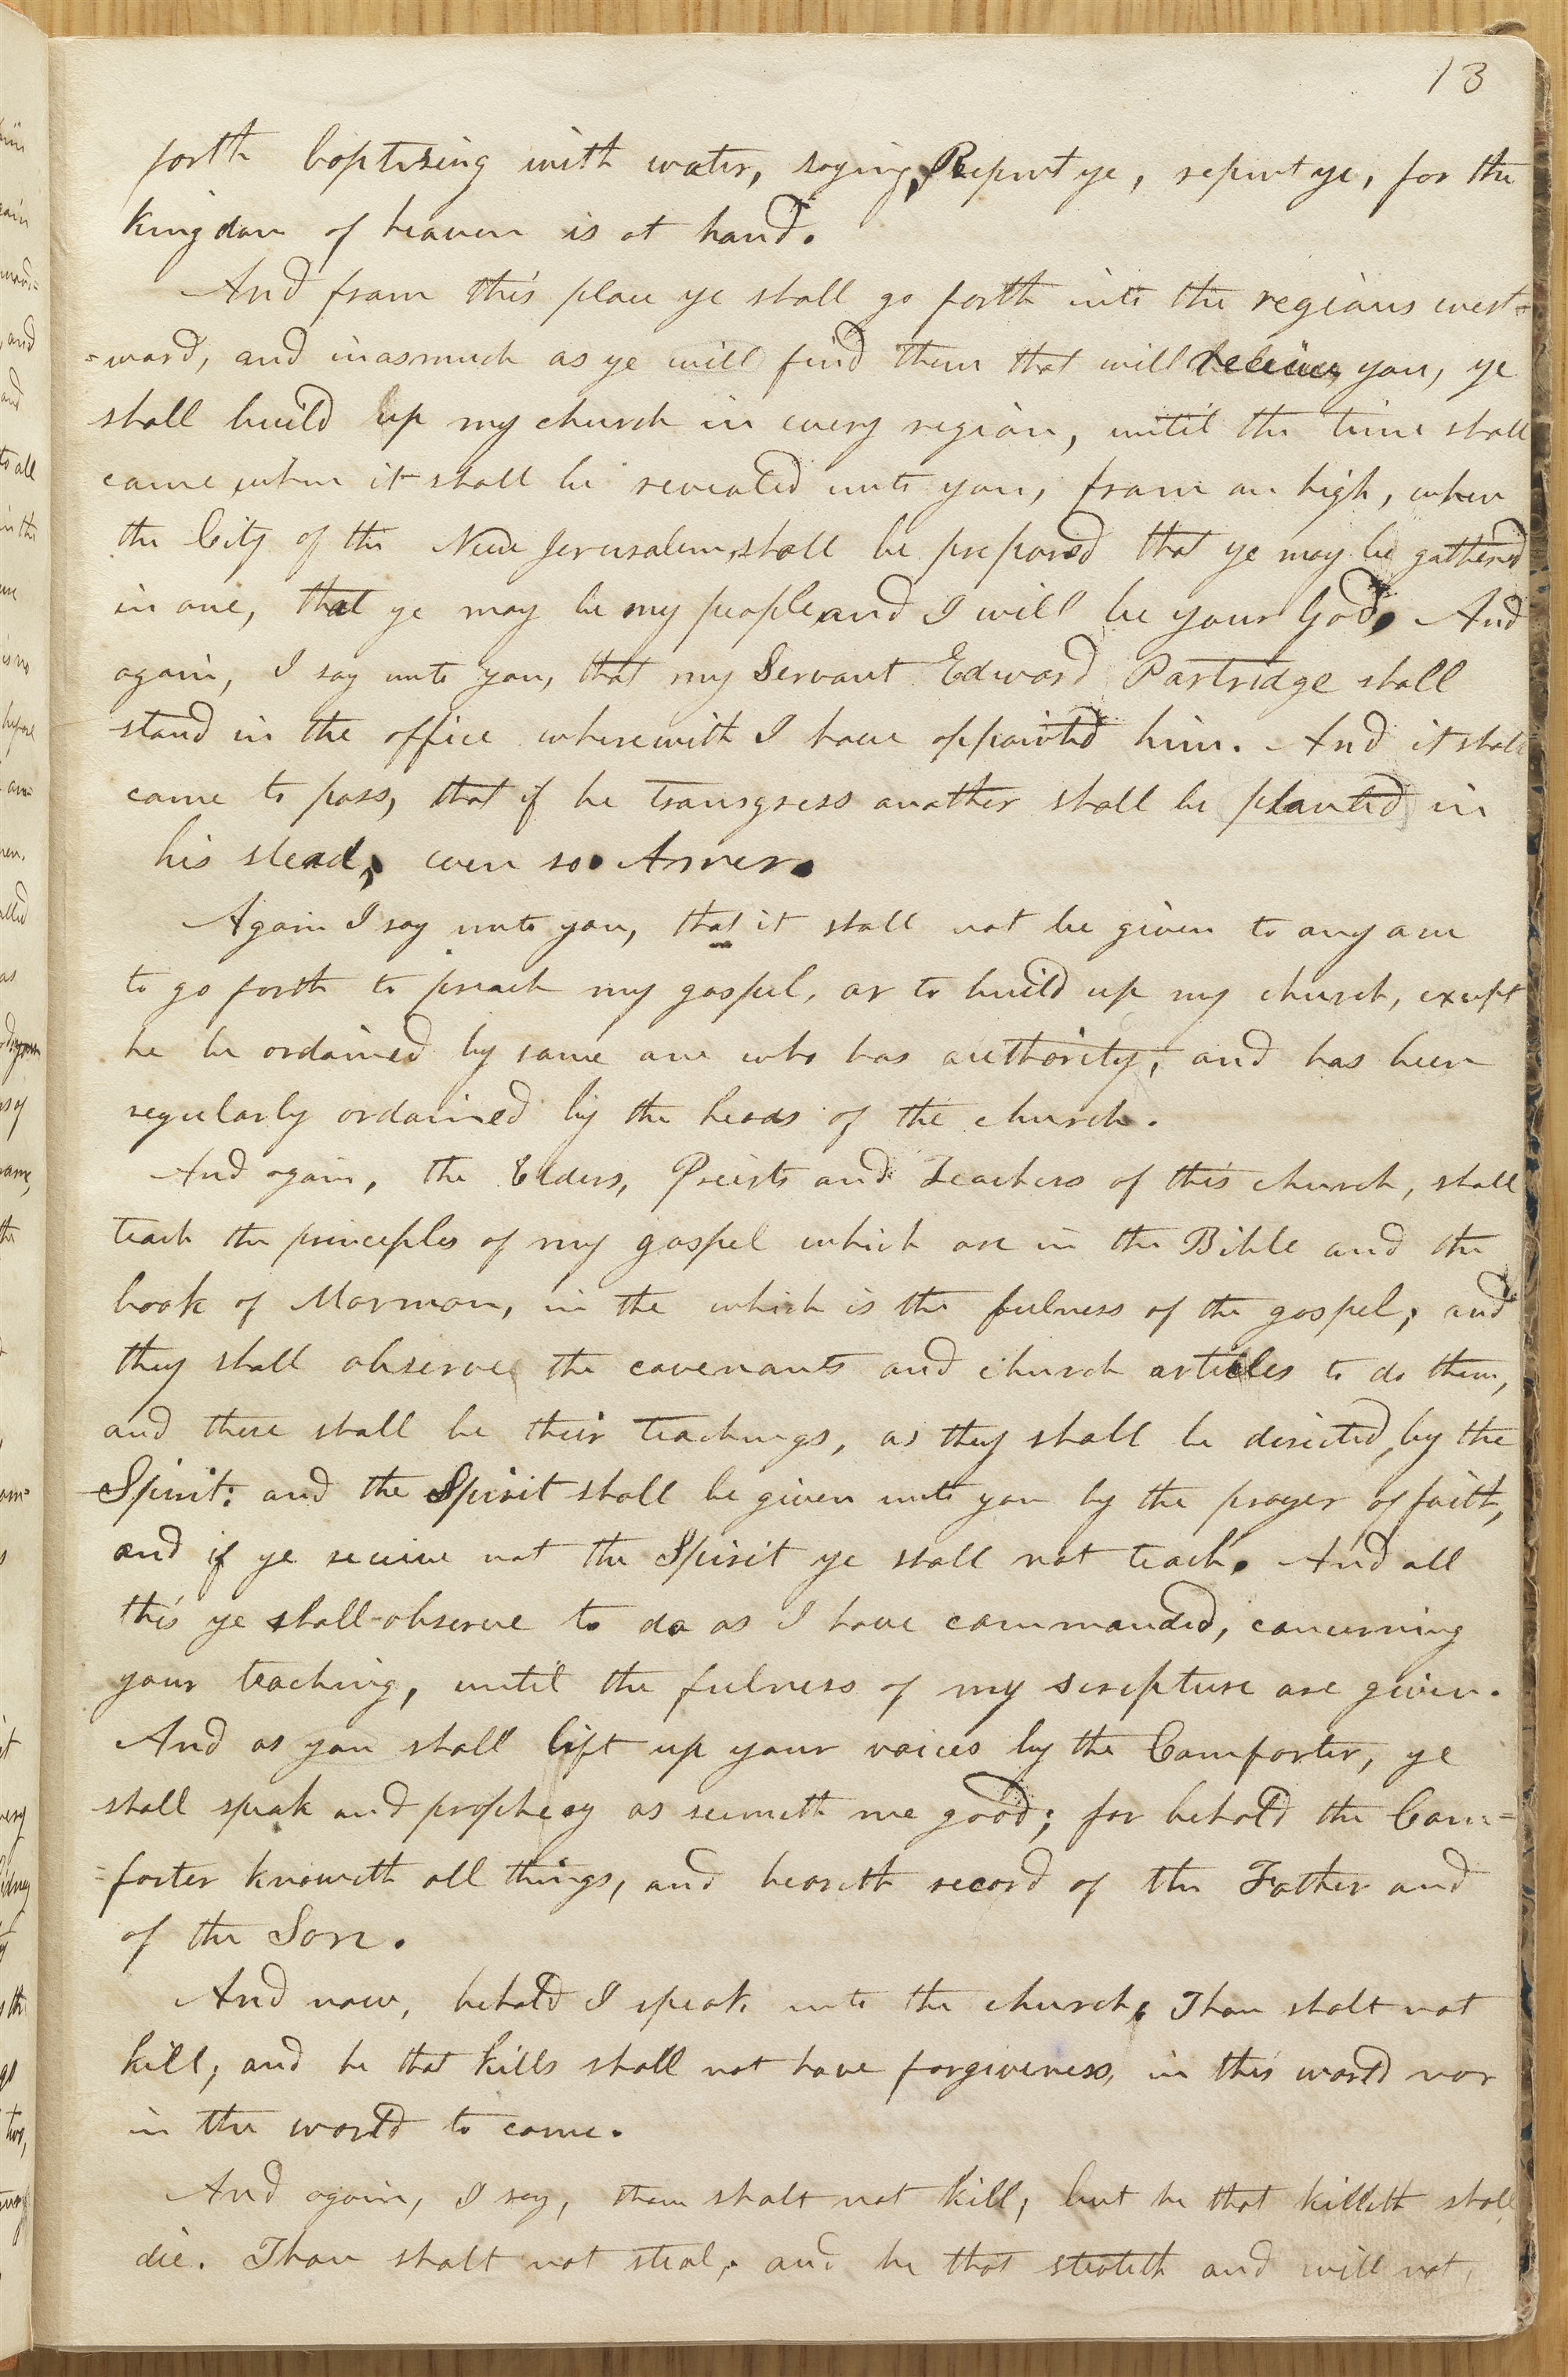 13
forth baptizing with water, saying, Repent ye, repent ye, for the
kingdom of heaven is at hand.
And from this place ye shall go forth into the regions west=
=ward, and inasmuch as ye will find them that will receive you, ye
shall build up my church in every region, until the time shall
come when it shall be revealed unto you, from on high, when
the City of the New Jerusalem, shall be prepared that ye may be gathered
in one, that ye may be my people, and I will be your God, And
again, I say unto you, that my Servant Edward Partridge shall
stand in the office wherewith I have appointed him. And it shall
come to pass, that if he transgress another shall be planted in
his stead, even so. Amen.
Again I say unto you, that it shall not be given to any one
to go forth to preach my gospel, or to build up my church, except
he be ordained by some one who has authority, and has been
regularly ordained by the heads of the church.
And again, the Elders, Preists and Teachers of this church, shall
teach the principles of my gospel which are in the Bible and the
book of Mormon, in the which is the fulness of the gospel; and
they shall observe the covenants and church articles to do them,
and these shall be their teachings, as they shall be directed, by the
Spirit: and the Spirit shall be given unto you by the prayer of faith,
and if ye receive not the Spirit ye shall not teach. And all
this ye shall observe to do as I have commanded, concerning
your teaching, until the fulness of my scripture are given.
And as you shall lift up your voices by the Comforter, ye
shall speak and prophecy as seemeth me good; for behold the Com=
=forter knoweth all things, and beareth record of the Father and
of the Son.
And now, behold I speak unto the church, Thou shalt not
kill; and he that kills shall not have forgiveness, in this world nor
in the world to come.
And again, I say, thou shalt not kill; but he that killeth shall
die. Thou shalt not steal; and he that stealeth and will not,